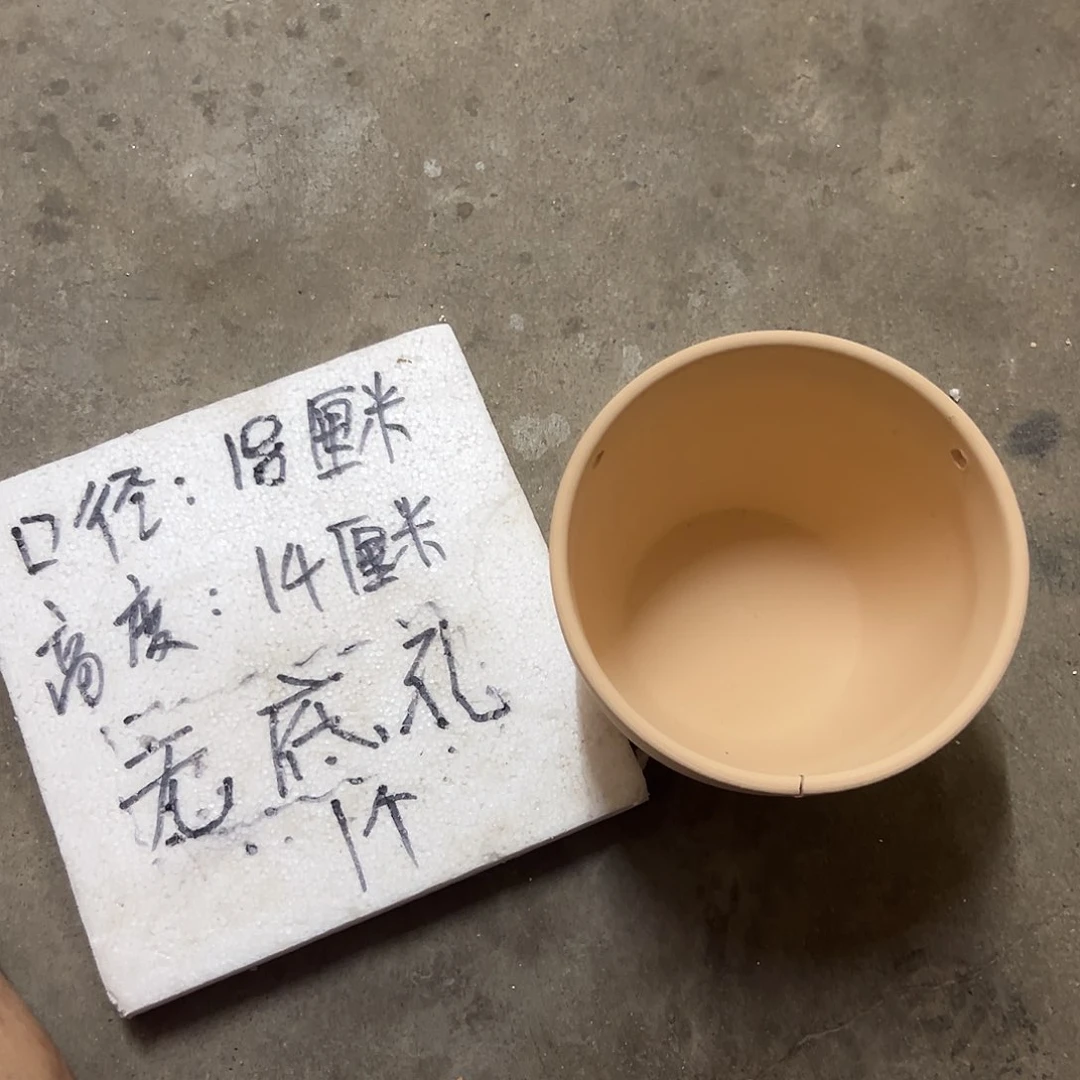 口径:18厘米
高度:14厘米
无底孔
1个